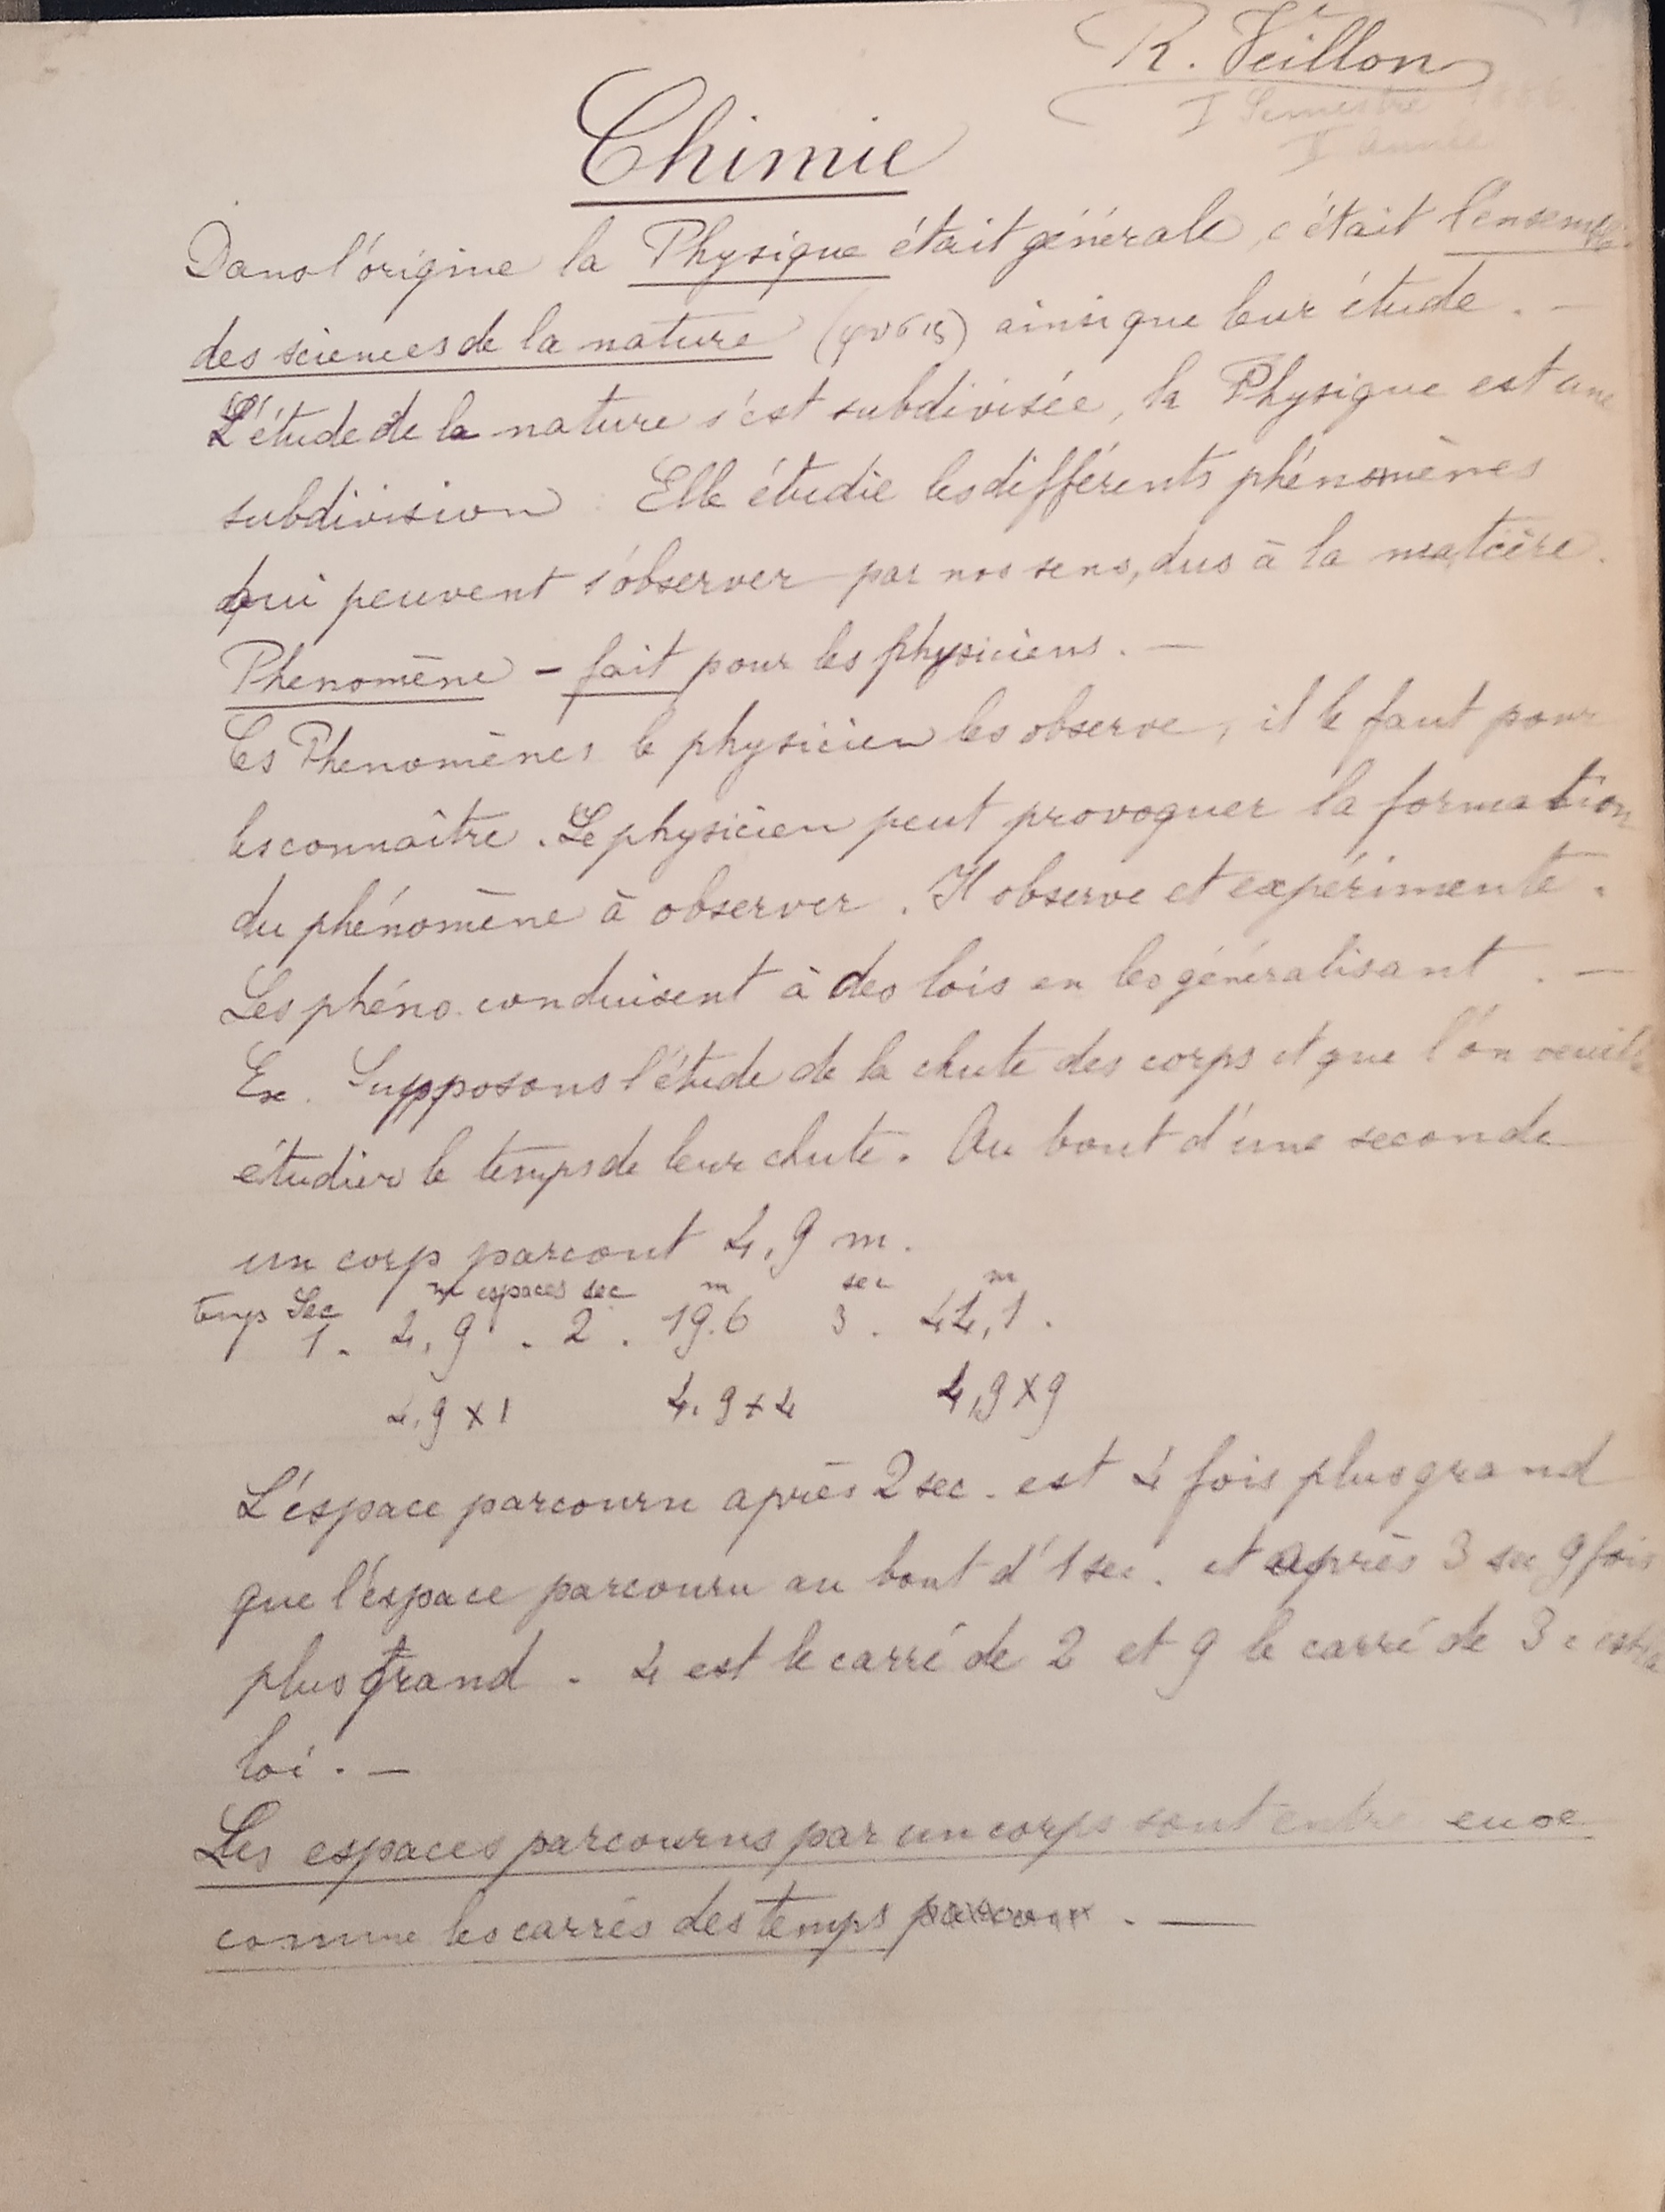 R. Veillon
I Semestre 1886.
II Année
Chimie
Dans l'origine la Physique était générale, c'était l'ensemble
des sciences de la nature (φύσις) ainsi que leur étude. —
L'étude de la nature s'est subdivisée, la Physique est une
subdivision. Elle étudie les différents phénomènes
qui peuvent s'observer par nos sens, dus à la matière.
Phenomène - fait pour les physiciens. —
Ces Phenomènes le physicien les observe, il le faut pour
les connaître. Le physicien peut provoquer la formation
du phénomène à observer. Il observe et expérimente.
Les phéno. conduisent à des lois en les généralisant. —
Ex. Supposons l'étude de la chute des corps et que l'on veuille
étudier le temps de leur chute. Au bout d'une seconde
un corp parcourt 4,9 m.
temps Sec m espaces sec m sec m
1. 4,9. 2. 19.6 3. 44,1.
4,9 x 1 4.9 x 4 4,9 x 9
L'éspace parcouru après 2 sec. est 4 fois plus grand
que l'éspace parcouru au bout d'1 sec. et après 3 sec 9 fois
plus grand. 4 est le carré de 2 et 9 le carré de 3 c'est la
loi. —
Les espaces parcourus par un corps sont entre eux
comme les carrés des temps . —